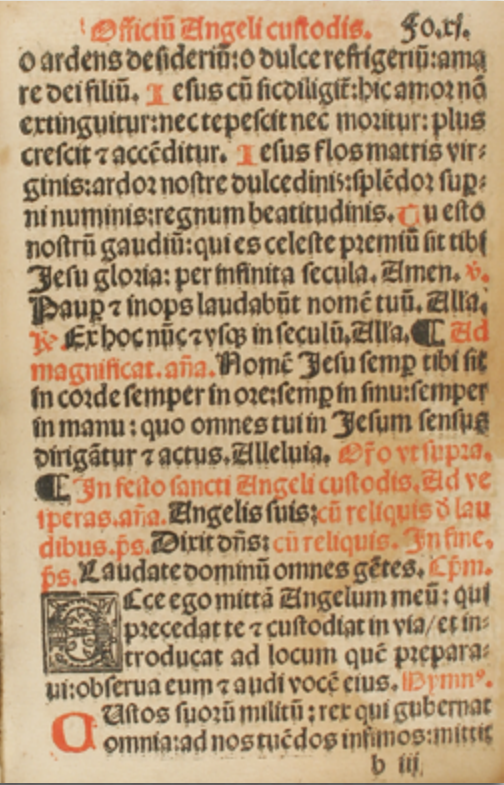 Officiū Angeli custodis. Fo.xj.
o ardens desideriū:o dulce refrigeriū:ama
re dei filiū. Iesus cū sic diligit̄:hic amor nō
extinguitur:nec tepescit nec moritur: plus
crescit ⁊ accēditur. Iesus flos matris vir⸗
ginis:ardor nostre dulcedinis:splēdor sup̲⸗
ni numinis:regnum beatitudinis. Tu esto
nostrū gaudiū:qui es celeste premiū sit tibi
Jesu gloria: per infinita secula. Amen. ℣.
Paup̲ ⁊ inops laudabūt nomē tuū. Alla.
℟. Ex hoc nūc ⁊ vsq̄ in seculū. Alla. ¶ Ad
magnificat. aña. Nomē Jesu semp̲ tibi sit
in corde semper in ore:semp̲ in sinu:semper
in manu: quo omnes tui in Jesum sensus
dirigātur ⁊ actus. Alleluia. Oro vt supra.
¶ In festo sancti Angeli custodis. Ad ve
speras. aña. Angelis suis:cū reliquis d̄ lau
dibus. p̄s. Dixit dn̄s: cū reliquis. In fine.
p̄s. Laudate dominū omnes gētes. Cpm̄.
Ecce ego mittā Angelum meū: qui
precedat te ⁊ custodiat in via/et in⸗
troducat ad locum quē prepara⸗
ui:obserua eum ⁊ audi vocē eius. Hymnꝰ.
Custos suorū militū: rex qui gubernat
omnia:ad nos tuēdos infimos:mittit
b iij